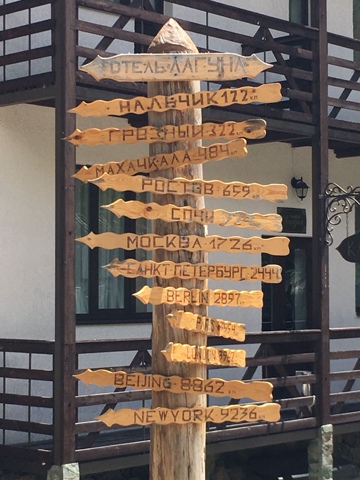 ОТЕЛЬ АЛГУНА
НАЛЬЧИК 122 км
ГРОЗНЫЙ 322 км
МАХАЧКАЛА 484 км
РОСТОВ-659 км
СОЧИ
МОСКВА 1726 км
САНКТ ПЕТЕРБУРГ 2444
BERLIN 2897
LONDON
BEIJING-8862 км
NEWYORK 9236 км